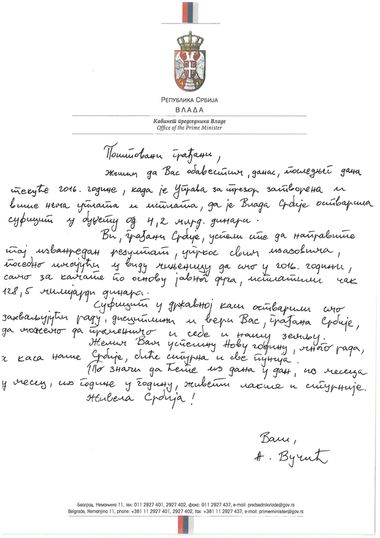 РЕПУБЛИКА СРБИЈА
ВЛАДА
Кабинет председника Владе
Office of the Prime Minister
Поштовани грађани,
желим да Вас обавестим, данас, последњег дана
текуће 2016. године, када је Управа за трезор затворена и
више нема уплата и исплата, да је Влада Србије остварила
суфицит у буџету од 4,2 млрд. динара.
Ви, грађани Србије, успели сте да направите
тај изванредан резултат, упркос свим изазовима,
посебно имајући у виду чињеницу да смо у 2016. години,
само за камате по основу јавног дуга, исплатили чак
128,5 милијарди динара.
Суфицит у државној каси остварили смо
захваљујући раду, дисциплини и вери Вас, грађана Србије,
да можемо да променимо и себе и нашу земљу.
Желим Вам успешну Нову годину, много рада,
а каса наше Србије, биће сигурна и све пунија.
То значи да ћете из дана у дан, из месеца
у месец, из године у годину, живети лакше и сигурније.
Живела Србија!
Ваш,
А. Вучић
Београд, Немањина 11, тел: 011 2927 401, 2927 402, факс: 011 2927 437, e-mail: predsednikvlade@gov.rs
Belgrade, Nemanjina 11, phone: +381 11 2927 401, 2927 402, fax: +381 11 2927 437, e-mail: primeminister@gov.rs